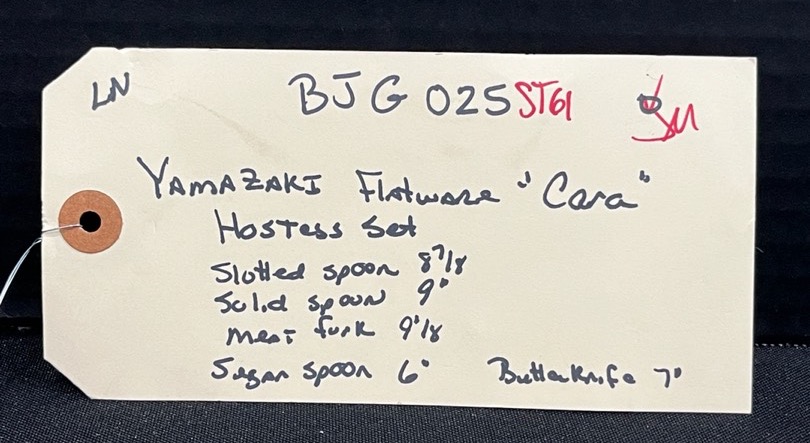 LN BJG 025 ST61
YAMAZAKI Flatware "Cara"
Hostess Set
Slotted spoon 8 7/8
Solid spoon 9"
Meat fork 9 1/8
Sugar spoon 6" Butterknife 7"